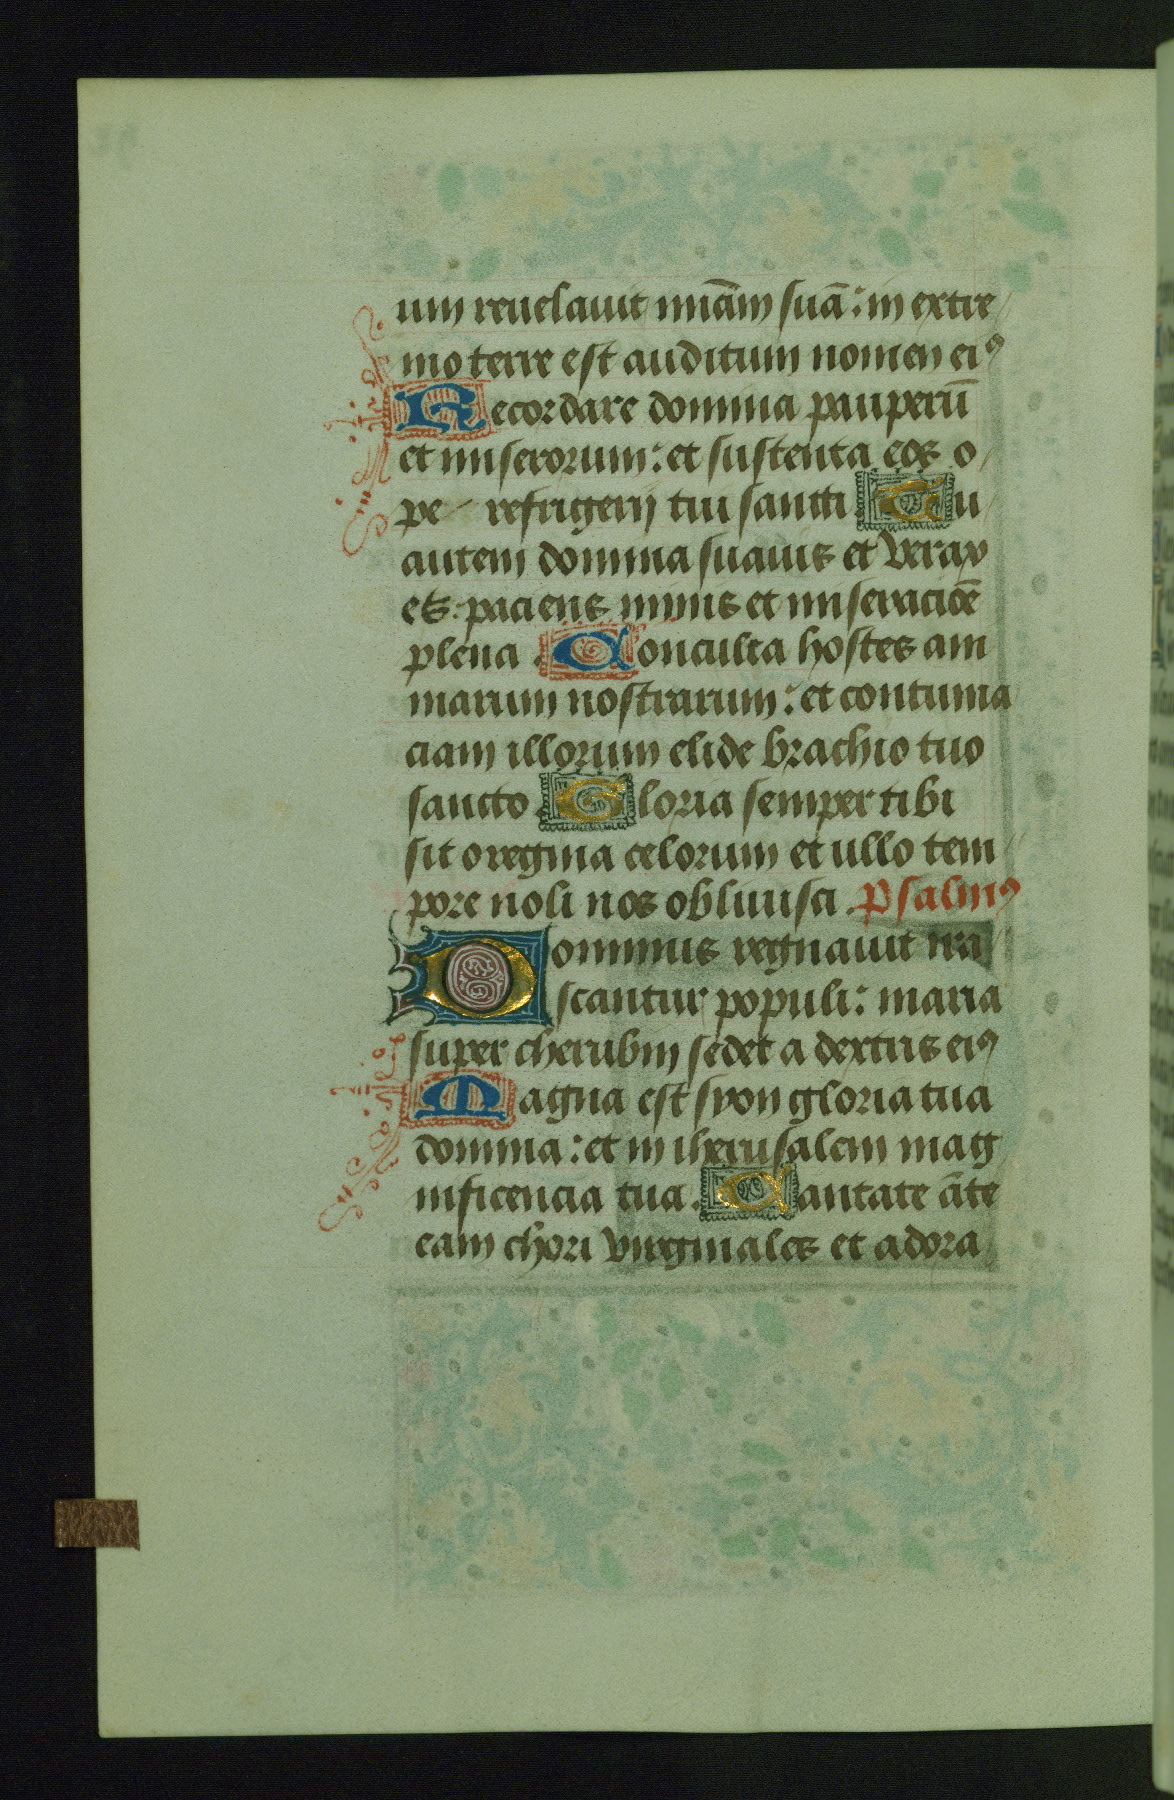 um reuelauit miãm suã: in extre
mo terre est auditum nomen eiꝰ
Recordare domina pauperũ
et miserorum: et sustenta eos o
pe refrigerij tui sancti Tu
autem domina suauis et verax
es: paciens nimis et miseracioẽ
plena. Conculca hostes ani
marum nostrarum: et contuma
ciam illorum elide brachio tuo
sancto. Gloria semper tibi
sit o regina celorum et ullo tem
pore noli nos obliuisci. Psalmꝰ
Dominus regnauit ira
scantur populi: maria
super cherubin sedet a dextris eiꝰ
Magna est syon gloria tua
domina: et in iherusalem mag
nificencia tua. Cantate ãte
eam chori virginales et adora